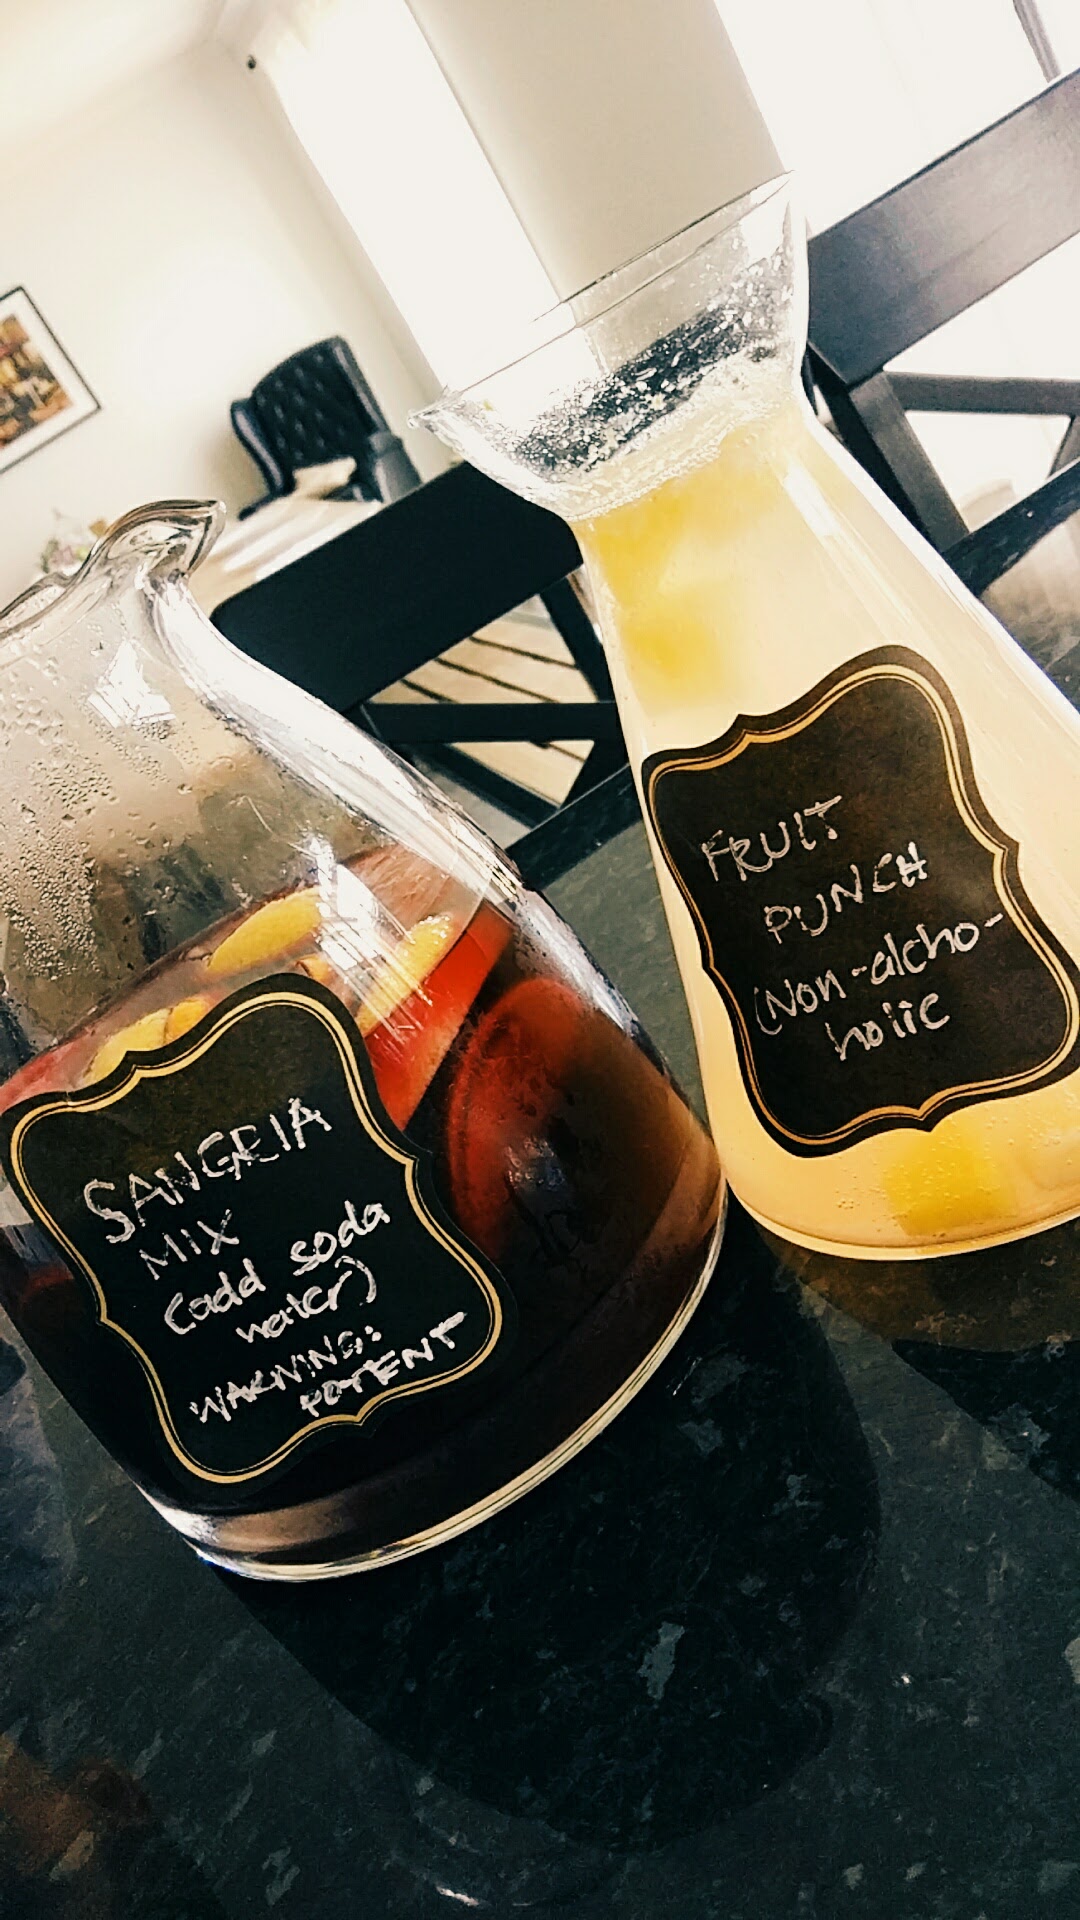 SANGRIA
MIX
(add soda
water)
WARNING:
POTENT
FRUIT
PUNCH
(Non-alcho-
holic